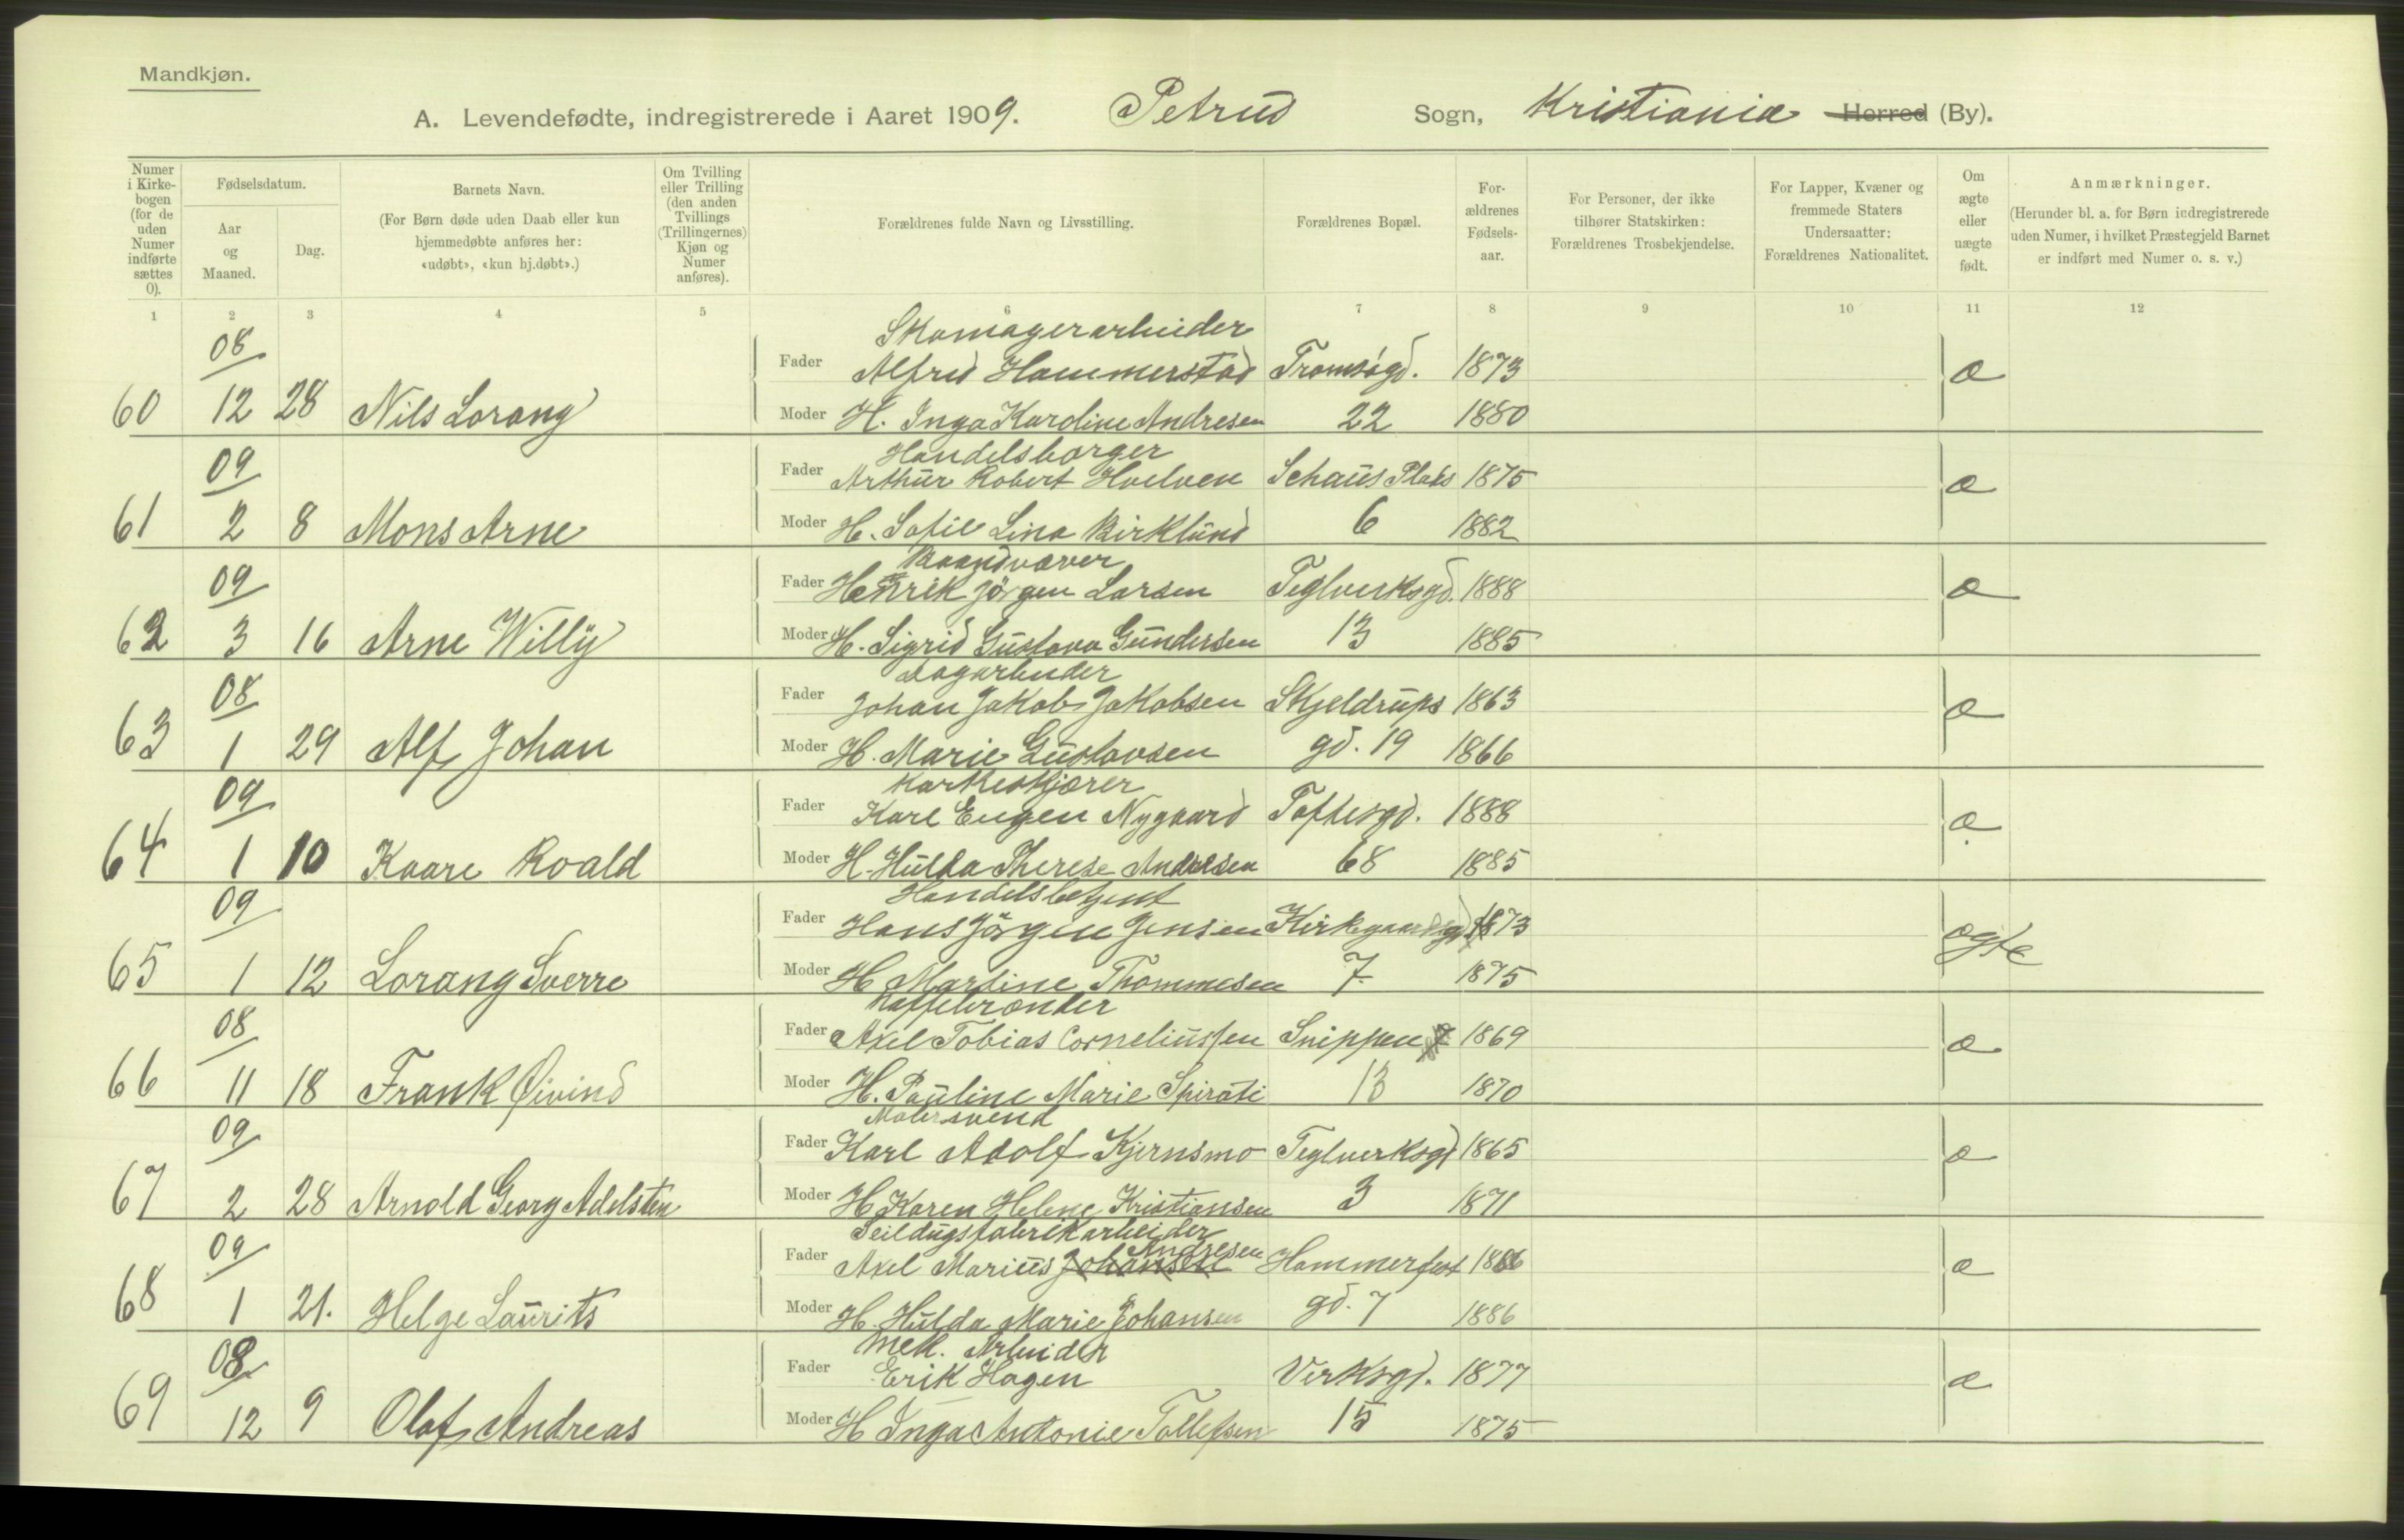 Mandkjøn.
A. Levendefødte, indregistrerede i Aaret 1909. Petrus Sogn, Kristiania Herred (By).
Numer i Kirkebogen (for de uden Numer indførte sættes 0).
Fødselsdatum.
Aar og Maaned.
Dag.
Barnets Navn.
(For Børn døde uden Daab eller kun hjemmedøbte anføres her: «udøbt», «kun hj.døbt».)
Om Tvilling eller Trilling (den anden Tvillings (Trillingernes) Kjøn og Numer anføres).
Forældrenes fulde Navn og Livsstilling.
Forældrenes Bopæl.
Forældrenes Fødselsaar.
For Personer, der ikke tilhører Statskirken: Forældrenes Trosbekjendelse.
For Lapper, Kvæner og fremmede Staters Undersaatter: Forældrenes Nationalitet.
Om ægte eller uægte født.
Anmærkninger.
(Herunder bl. a. for Børn indregistrerede uden Numer, i hvilket Præstegjeld Barnet er indført med Numer o. s. v.)
1 2 3 4 5 6 7 8 9 10 11 12
08 Skomagerarbeider
Fader Alfred Hammerstad Tromsøgd. 1873 æ
60 12 28 Nils Lorang Moder H. Inga Karoline Andresen 22 1880
09 Handelsborger
Fader Arthur Robert Hoelven Schaus Plads 1875 æ
61 2 8 Mons Arne Moder H. Sofie Lina Birklund 6 1882
09 Baandvæver
Fader Henrik Jörgen Larsen Teglverksgd. 1888 æ
62 3 16 Arne Willy Moder H. Sigrid Gustava Gundersen 13 1885
08 Dagarbeider
Fader Johan Jakob Jakobsen Skjeldrups 1863 æ
63 1 29 Alf Johan Moder H. Marie Gustavsen gd. 19 1866
09 Korkeskjærer
Fader Karl Eugen Nygaard Toftesgd. 1888 æ
64 1 10 Kaare Roald Moder H. Hulda Therese Andresen 68 1885
09 Handelsbetjent
Fader Hans Jörgen Jensen Kirkegaardsgd 1873 ægte
65 1 12 Lorang Sverre Moder H Martine Thommesen 7 1875
08 Kaffebrænder
Fader Axel Tobias Corneliussen Snippen 1869 æ
66 11 18 Frank Øivind Moder H. Pauline Marie Spirati 13 1870
09 Malersvend
Fader Karl Adolf Kjernsmo Teglverksgd 1865 æ
67 2 28 Arnold Georg Adelsten Moder H Karen Helene Kristiansen 3 1871
09 Seildugsfabrikarbeider
Fader Axel Marius Johansen Andresen Hammerfest 1886 æ
68 1 21. Helge Laurits Moder H. Hulda Marie Johansen gd. 7 1886
08 Mek. Arbeider
Fader Erik Hagen Verksgd. 1877 æ
69 12 9 Olaf Andreas Moder H Inga Antonie Tollefsen 15 1875